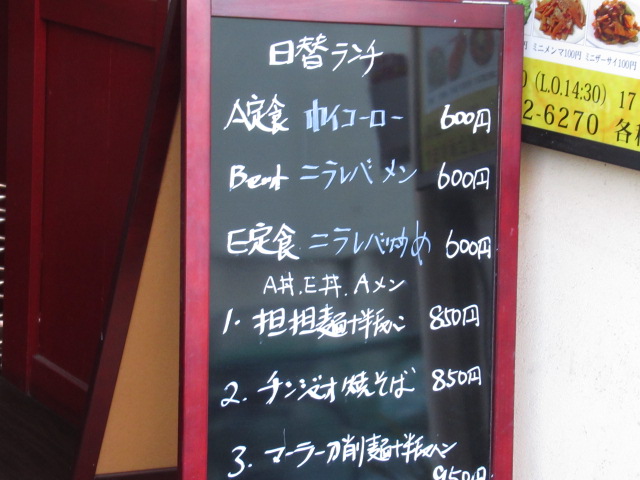 日替ランチ
A定食 ホイコーロー 600円
Bセット ニラレバメン 600円
E定食 ニラレバ炒め 600円
A丼.E丼.Aメン
1. 担担麺+半 850円
2. チンジャオ焼そば 850円
3. マーラー刀削麺+半 950円
ミニメンマ100円 ミニザーサイ100円
(L.O.14:30) 17
2-6270 各種